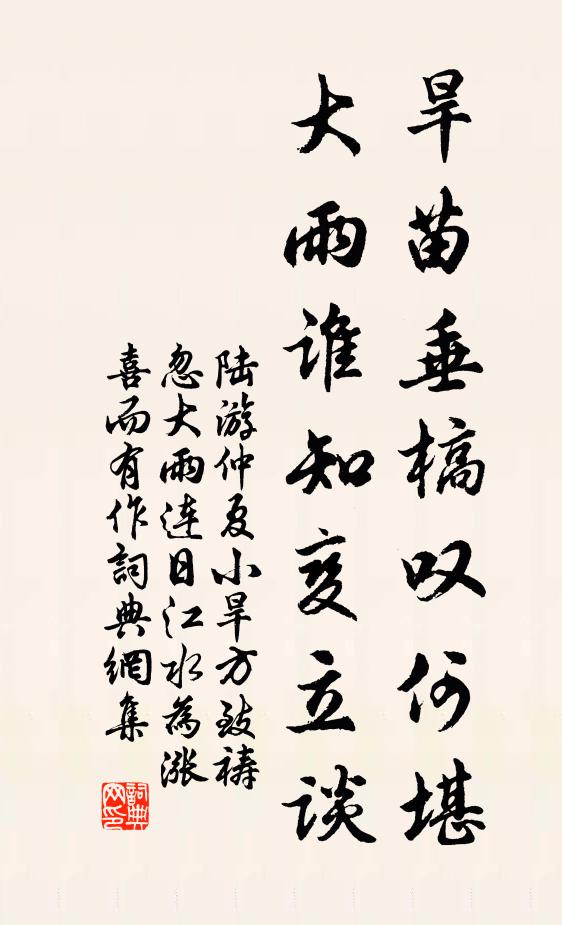 旱苗垂槁叹何堪
大雨谁知变立谈
陆游仲夏小旱方致祷
忽大雨连日江水為涨
喜而有作詞典網集
詞典网印